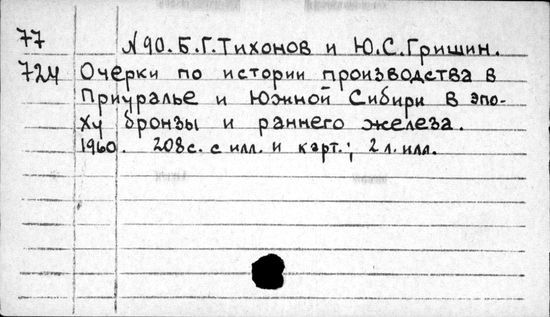 77 N 90. Б.Г.Тихонов и Ю.С.Гришин.
724 Очерки по истории производства в
Приуралье и Южной Сибири в эпо-
ху бронзы и раннего железа.
1960. 208с. с илл. и карт.; 2 л. илл.